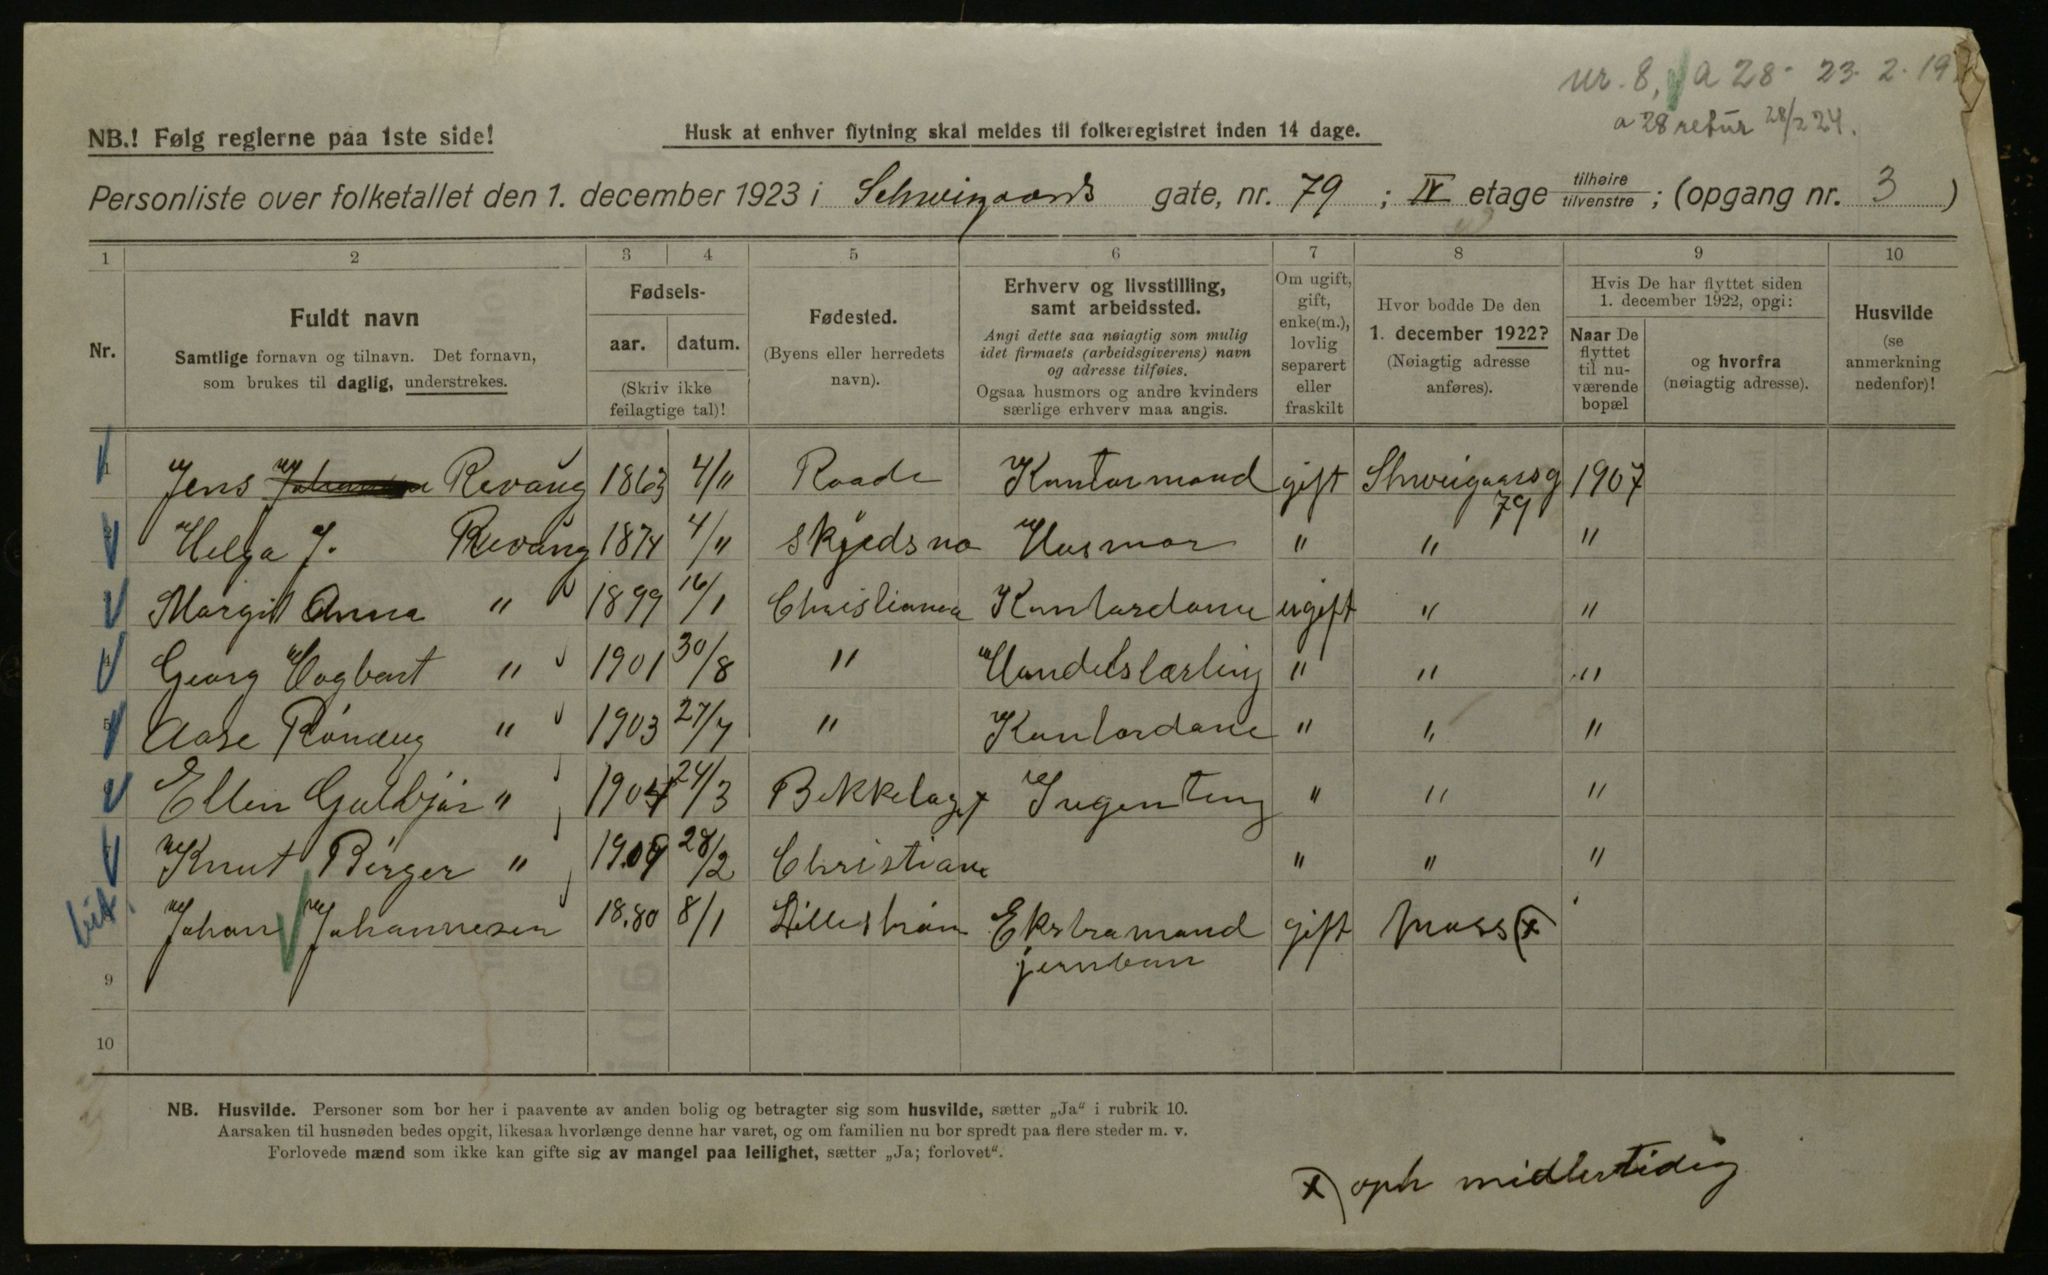 nr. 8, a 28- 23. 2. 19
a 28 retur 28/2 24.
NB.! Følg reglerne paa 1ste side!
Husk at enhver flytning skal meldes til folkeregistret inden 14 dage.
Personliste over folketallet den 1. december 1923 i Schweigaards gate, nr. 79 ; IV etage tilhøire tilvenstre ; (opgang nr. 3 )
1 2 3 4 5 6 7 8 9 10
Nr.
Fuldt navn
Samtlige fornavn og tilnavn. Det fornavn,
som brukes til daglig, understrekes.
Fødsels-
aar. datum.
(Skriv ikke
feilagtige tal)!
Fødested.
(Byens eller herredets
navn).
Erhverv og livsstilling,
samt arbeidssted.
Angi dette saa nøiagtig som mulig
idet firmaets (arbeidsgiverens) navn
og adresse tilføies.
Ogsaa husmors og andre kvinders
særlige erhverv maa angis.
Om ugift,
gift,
enke(m.),
lovlig
separert
eller
fraskilt
Hvor bodde De den
1. december 1922?
(Nøiagtig adresse
anføres).
Hvis De har flyttet siden
1. december 1922, opgi:
Naar De
flyttet
til nu-
værende
bopæl
og hvorfra
(nøiagtig adresse).
Husvilde
(se
anmerkning
nedenfor)!
1 Jens Revaug 1863 4/11 Raade Kontormand gift Shweigaarsg 79 1907
2 Helga J. Revaug 1874 4/11 Skjedsmo Husmor " " "
3 Margit Anna " 1899 16/1 Christiania Kontordame ugift " "
4 Georg Hagbart " 1901 30/8 " Handelslærling " " "
5 Aase Rónaug " 1903 27/7 " Kontordame " " "
6 Ellen Guldbjør " 1904 24/3 Bekkelaget Ingenting " " "
7 Knut Birger " 1909 28/2 Christiania " " "
Johan Johannesen 18.80 8/1 Lillestrøm Ekstramand gift Moss (x
jernban
9
10
NB. Husvilde. Personer som bor her i paavente av anden bolig og betragter sig som husvilde, sætter „Ja“ i rubrik 10.
Aarsaken til husnøden bedes opgit, likesaa hvorlænge denne har varet, og om familien nu bor spredt paa flere steder m. v.
Forlovede mænd som ikke kan gifte sig av mangel paa leilighet, sætter „Ja; forlovet“.
x) oph midlertidig